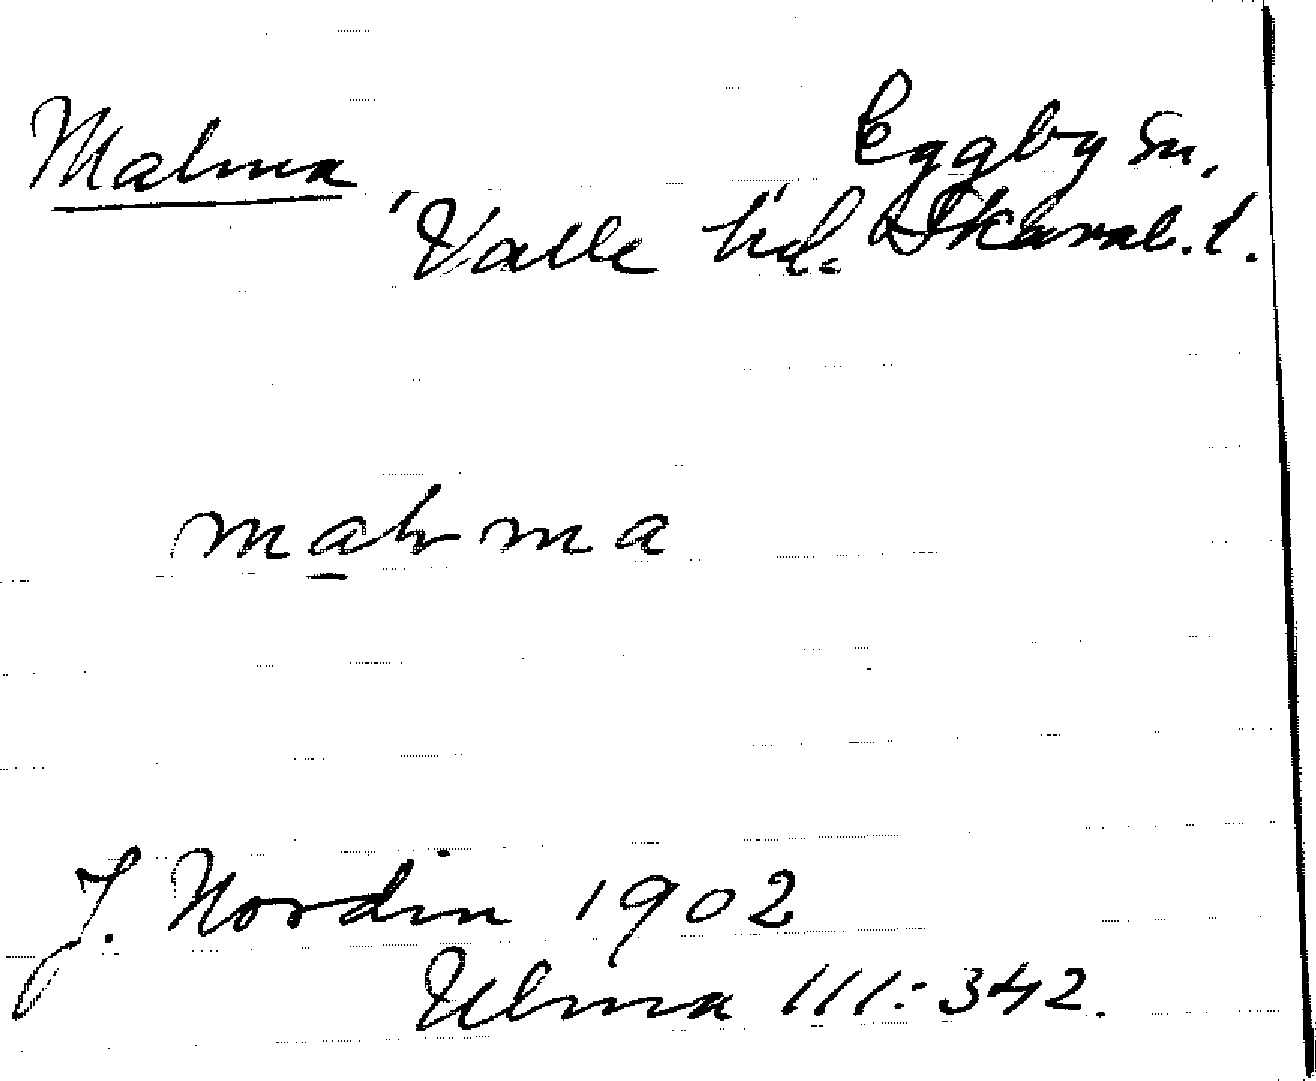 Malma Eggby sn,
Valle hd. Skarab. l.
malrma
J. Nordin 1902
Ulma 111:342.